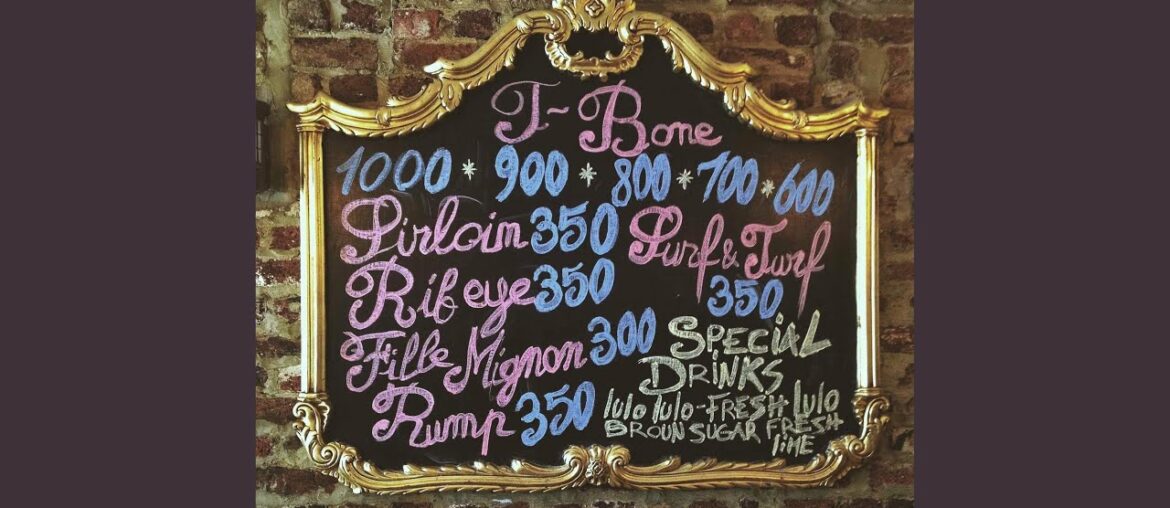 T-Bone
1000 * 900 * 800 * 700 * 600
Sirloin 350
Rib eye 350
Fille Mignon 300
Rump 350
Surf & Turf
350
SPECIAL
DRINKS
lulo lulo-FRESH lulo
BROUN SUGAR FRESH
liME